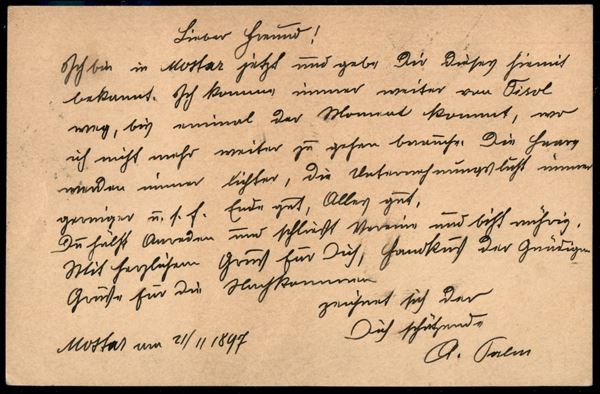 Lieber Freund!
Ich bin in Mostar jetzt und gebe Dir dieses hiemit
bekannt. Ich komme immer weiter von Tirol
weg, bis einmal der Moment kommt, wo
ich nicht mehr weiter zu gehen brauche. Die Haare
werden immer lichter, die Unternehmungslust immer
geringer u. s. f. Ende gut, Alles gut.
Du hälst Anreden und schließt Vereine und bist rührig.
Mit herzlichem Gruß für Dich, Handkuß der Gnädigen
Grüße für die Nachkommen
zeichnet sich der
Dich schätzende
A. Palm
Mostar am 21/11 1897